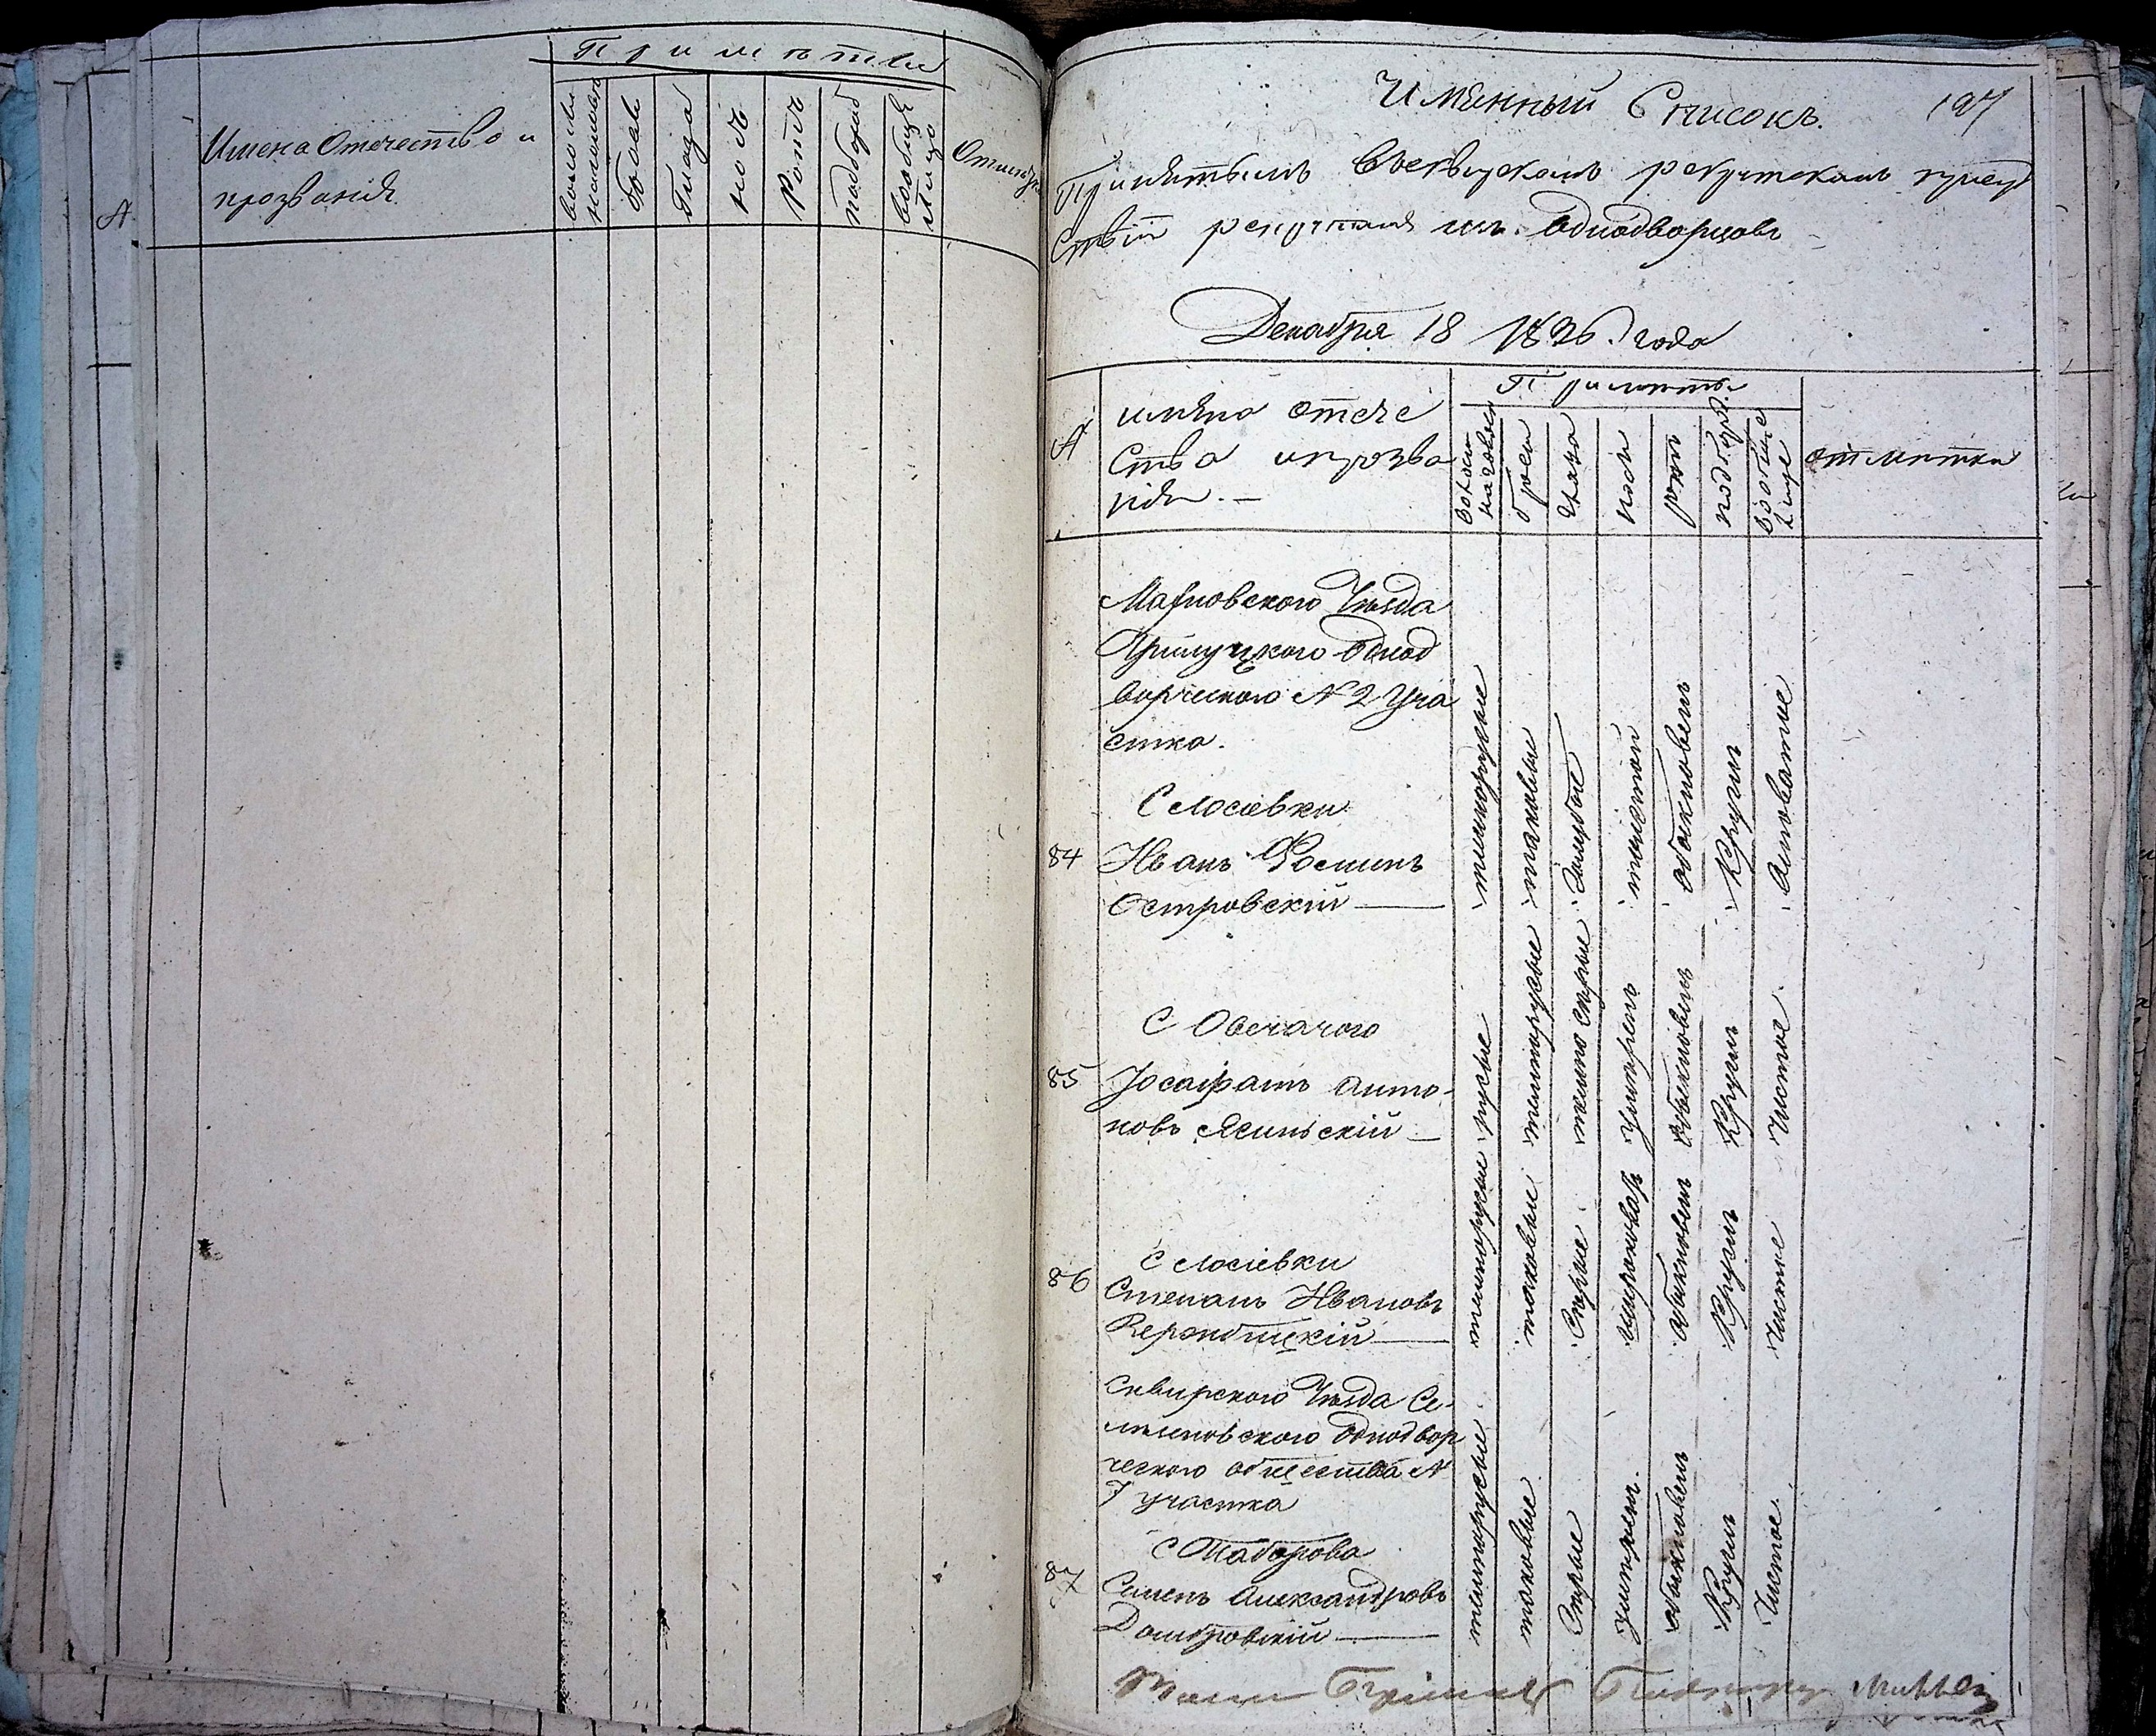 Примѣты
Имена Отечество и
прозванія.
№
волосы
на головѣ
брови
Глаза
носъ
Ротъ
подбород
вообще
Лицо
Отмѣтк
Имянный Списокъ.
197
Принятымъ Всквирскомъ рекрутскомъ присут
ствіи рекрутамъ изъ Однодворцовъ
Декабря 18 1836. года
№
имяна отече
ства ипрозва
нія. —
Примѣты
волосы
наголовѣ
брови
глаза
носъ
ротъ
подбород.
вообще
лице
отмѣтки
Махновского Уѣзда
Прилуцкого Однод
ворческого № 2 Уча
стка.
С Лосіевки
84 Иванъ Фоминъ
Островскій —
темнорусые
таковые
Голубые
толстой
обыкновен
Кругл
Антоватое
С Овечачого
85 Іосафатъ Анто-
новъ Ясинскій —
русые
темнорусые
темно серые
умерен
Обыкновен
Кругл
Чистое
С Лосіевки
86 Степанъ Ивановъ
—
темнорусые
таковые
Серые
широковат
обыкновен
Кругл
Чистое
Сквирского Уѣзда Се-
меновского Однодвор
ческого общества №
7 участка
С Таборова
87 Семенъ Александровъ
Домбровскій —
темнорусые
таковые
Серые
умерен.
обыкновен
Кругл
Чистое